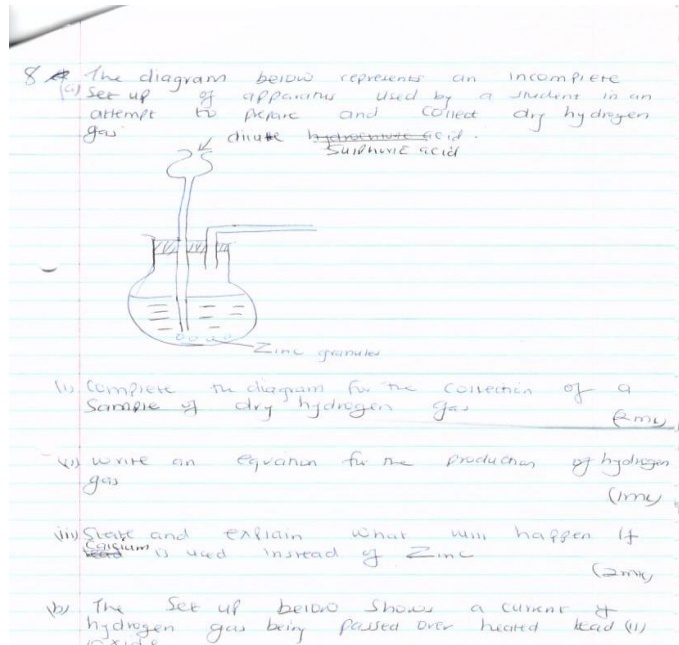 8 The diagram below represents an incomplete
(a) Set up of apparatus used by a student in an
attempt to prepare and collect dry hydrogen
gas
dilute hydrochloric acid.
Sulphuric acid
Zinc granules
(i) Complete the diagram for the collection of a
sample of dry hydrogen gas
(2mks)
(ii) Write an equation for the production of hydrogen
gas
(1mk)
(iii) State and explain what will happen if
Calcium is used instead of Zinc
(2mks)
(b) The set up below shows a current of
hydrogen gas being passed over heated lead (II)
oxide